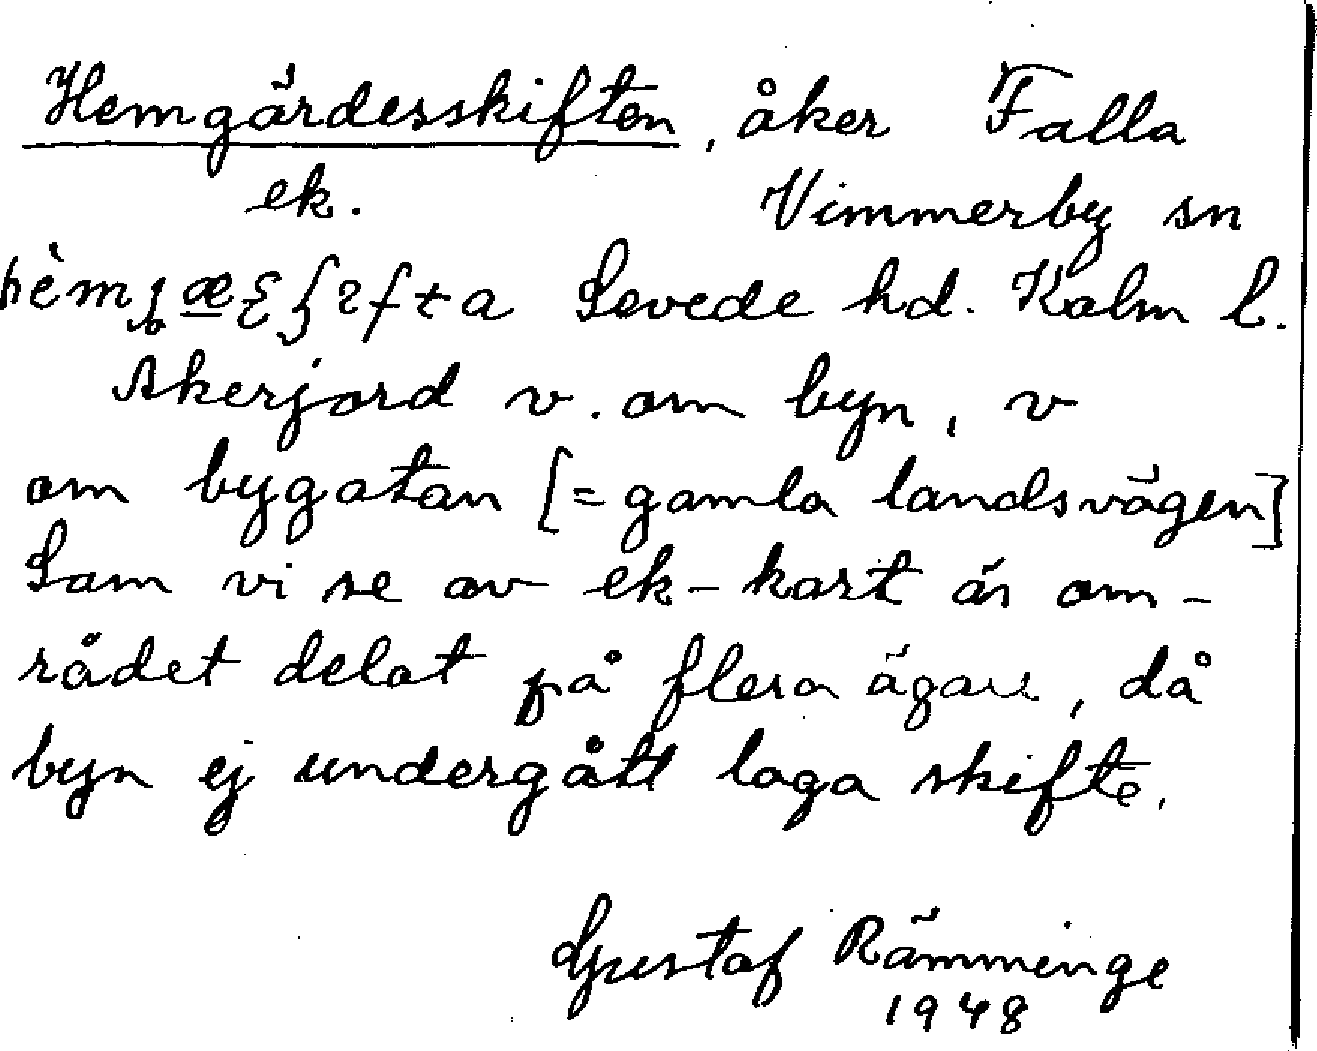 Hemgärdesskiften, åker Falla
ek. Vimmerby sn
Sevede hd. Kalm l.
Åkerjord v. om byn, v
om bygatan [= gamla landsvägen]
Som vi se av ek-kart är om-
rådet delat på flera ägare, då
byn ej undergått laga skifte.
Gustaf Rämminge
1948